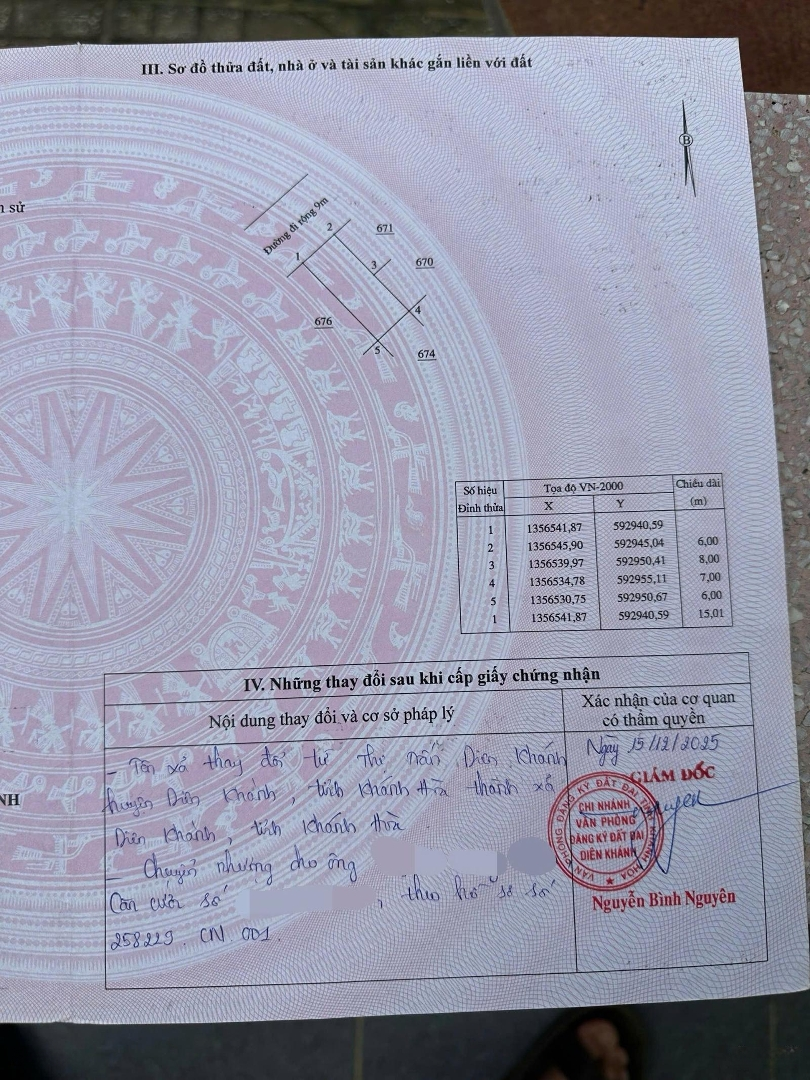 III. Sơ đồ thửa đất, nhà ở và tài sản khác gắn liền với đất
B
sử
Đường đi rộng 9m
1
2
671
3
670
4
676
5
674
Số hiệu Đỉnh thửa | Tọa độ VN-2000 X Y | Chiều dài (m)
1 1356541,87 592940,59
2 1356545,90 592945,04 6,00
3 1356539,97 592950,41 8,00
4 1356534,78 592955,11 7,00
5 1356530,75 592950,67 6,00
1 1356541,87 592940,59 15,01
NH
IV. Những thay đổi sau khi cấp giấy chứng nhận
Nội dung thay đổi và cơ sở pháp lý
Xác nhận của cơ quan
có thẩm quyền
- Tên xã thay đổi từ Thị trấn Diên Khánh
huyện Diên Khánh, tỉnh Khánh Hòa thành xã
Diên Khánh, tỉnh Khánh Hòa
- Chuyển nhượng cho ông
Căn cước số , theo hồ sơ số
258223.CN.001.
Ngày 15/12/2025
GIÁM ĐỐC
VĂN PHÒNG ĐĂNG KÝ ĐẤT ĐAI TỈNH KHÁNH HÒA
CHI NHÁNH
VĂN PHÒNG
ĐĂNG KÝ ĐẤT ĐAI
DIÊN KHÁNH
Nguyễn Bình Nguyên